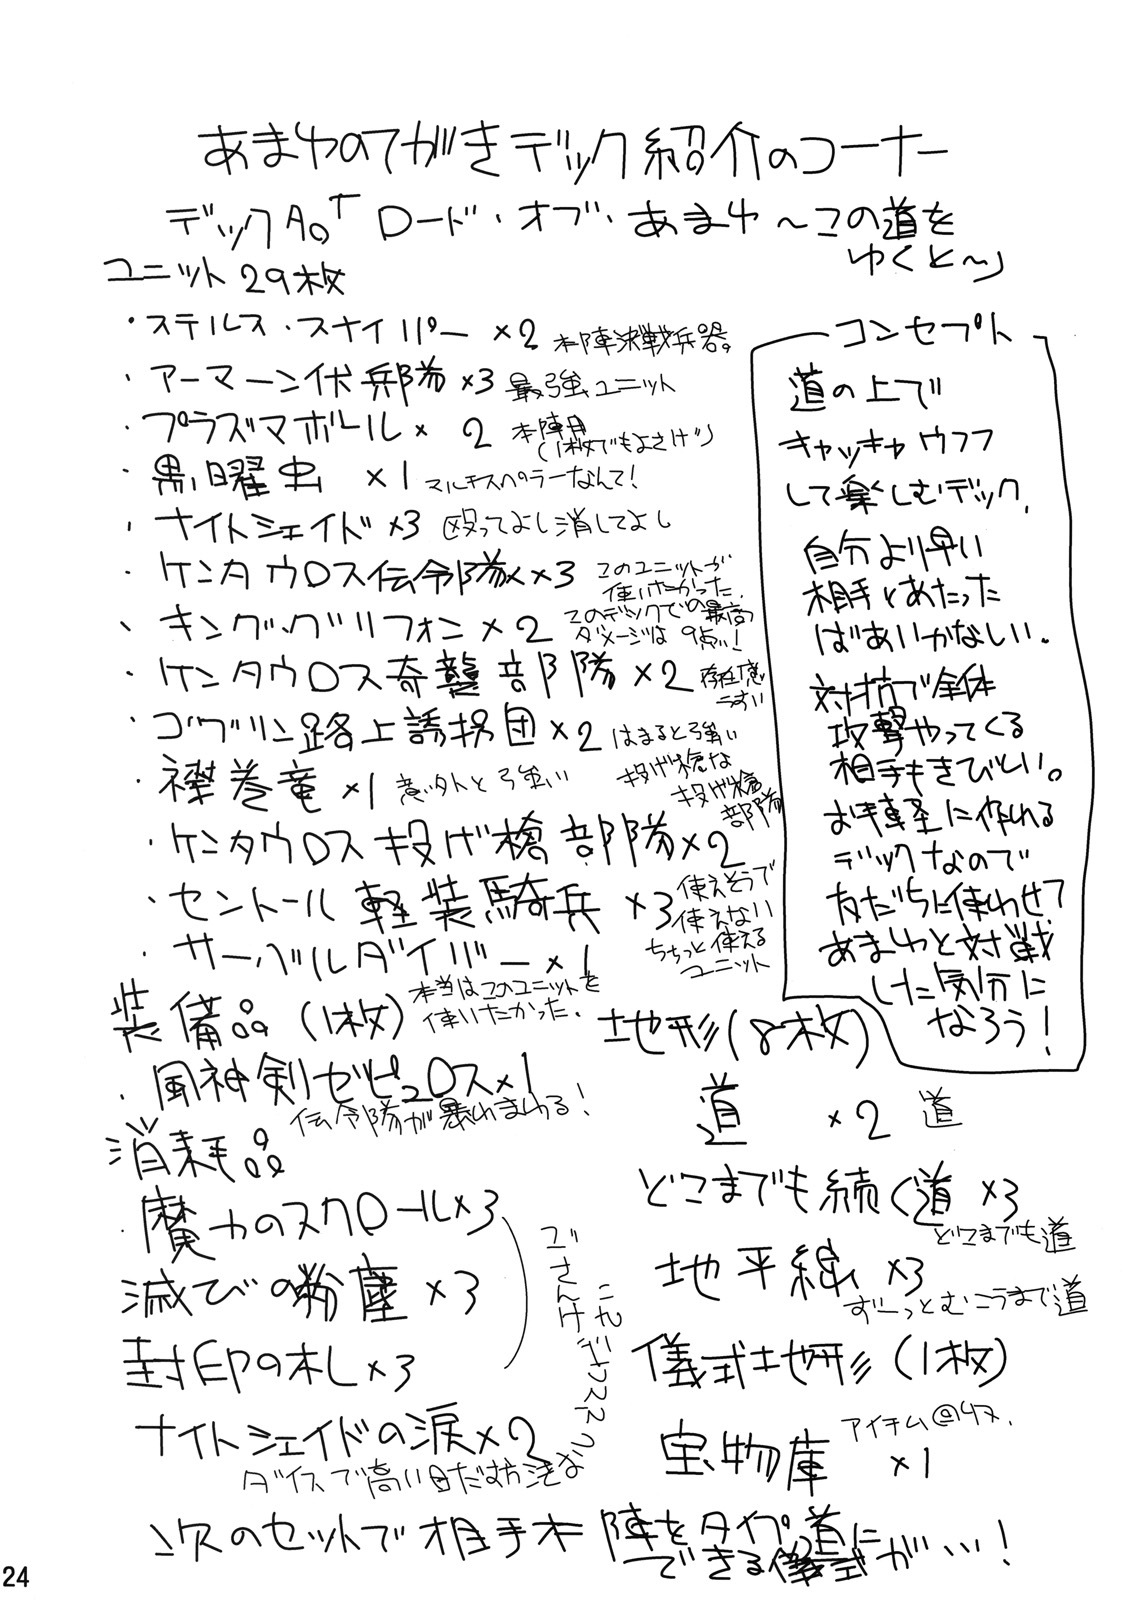 あまゆのてがきデック紹介のコーナー
デックA。「ロード・オブ・あまゆ～この道を
ゆくと～」
ユニット29枚
・ステルス・スナイパー×2 本陣決戦兵器。
・アーマーン伏兵部隊×3 最強ユニット
・プラズマボール×2 本陣用
(1枚でもよさげ)
・黒曜虫×1 マルチスペラーなんて!
・ナイトシェイド×3 殴ってよし消してよし
・ケンタウロス伝令隊×3 このユニットが
使いたかった.
・キング・グリフォン×2 このデックでの最高
ダメージは9点!
・ケンタウロス奇襲部隊×2 存在感
うすい
・ゴブリン路上誘拐団×2 はまると強い
・襷巻竜×1 意外と強い
・ケンタウロス投げ槍部隊×2
投げ槍な
投げ槍
部隊
・セントール軽装騎兵×3 使えそうで
使えない
ちょっと使える
ユニット
・サーベルダイバー×1
本当はこのユニットを
使いたかった.
コンセプト
道の上で
キャッキャウフフ
して楽しむデック.
自分より早い
相手とあたった
ばあいかなしい。
対抗で全体
攻撃やってくる
相手もきびしい。
お手軽に作れる
デックなので
友だちに使わせて
あまゆと対戦
した気分に
なろう!
装備品(1枚)
・風神剣ゼピュロス×1
伝令隊が暴れまわる!
消耗品
・魔力のスクロール×3
滅びの粉塵×3
封印の札×3
ごさんけ
ナイトシェイドの涙×2
ダイスで高い目だす方法な
地形(8枚)
道×2 道
どこまでも続く道×3
どこまでも道
地平線×3
ずーっとむこうまで道
儀式地形(1枚)
宝物庫×1
次のセットで相手本陣をタイプ道に
できる儀式が…!
24